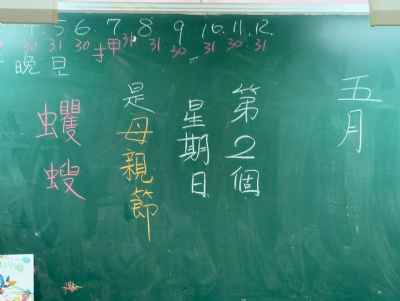 4. 5 6. 7 8 9 10. 11. 12.
30 31 30 31 31 30 31 30 31
晚 早 押
五月
第2個
星期日
是母親節
蠼螋